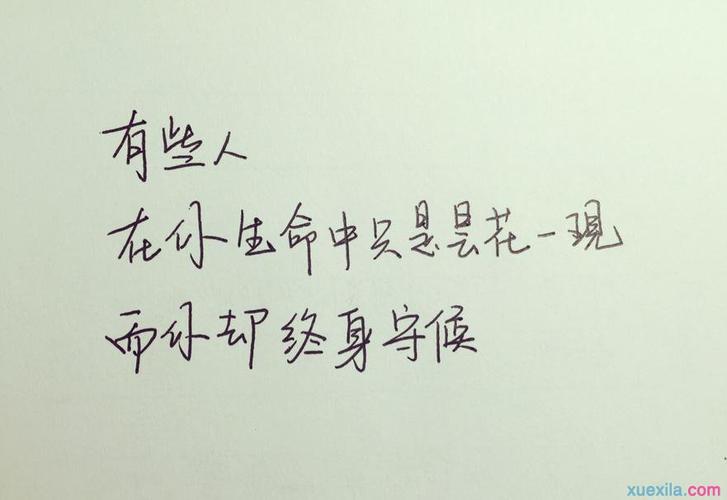 有些人
在你生命中只是昙花一現
而你却终身守候
xuexila.com